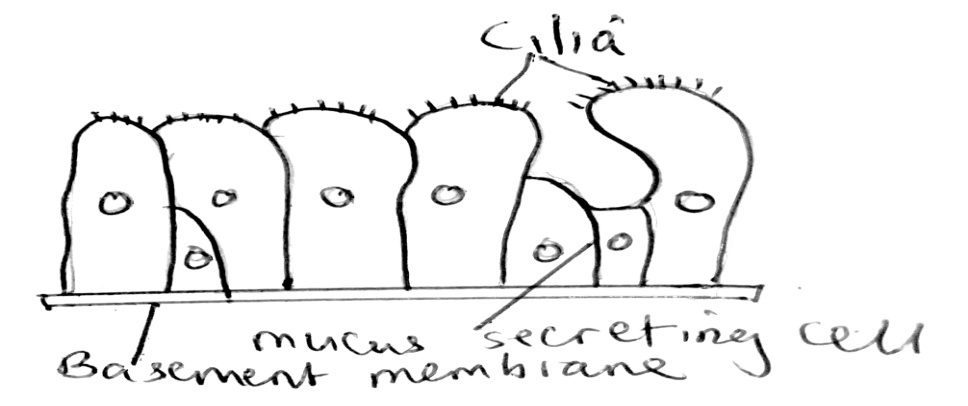 Cilia
mucus secreting cell
Basement membrane